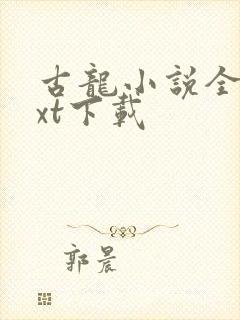 古龍小説全
xt下載
郭晨